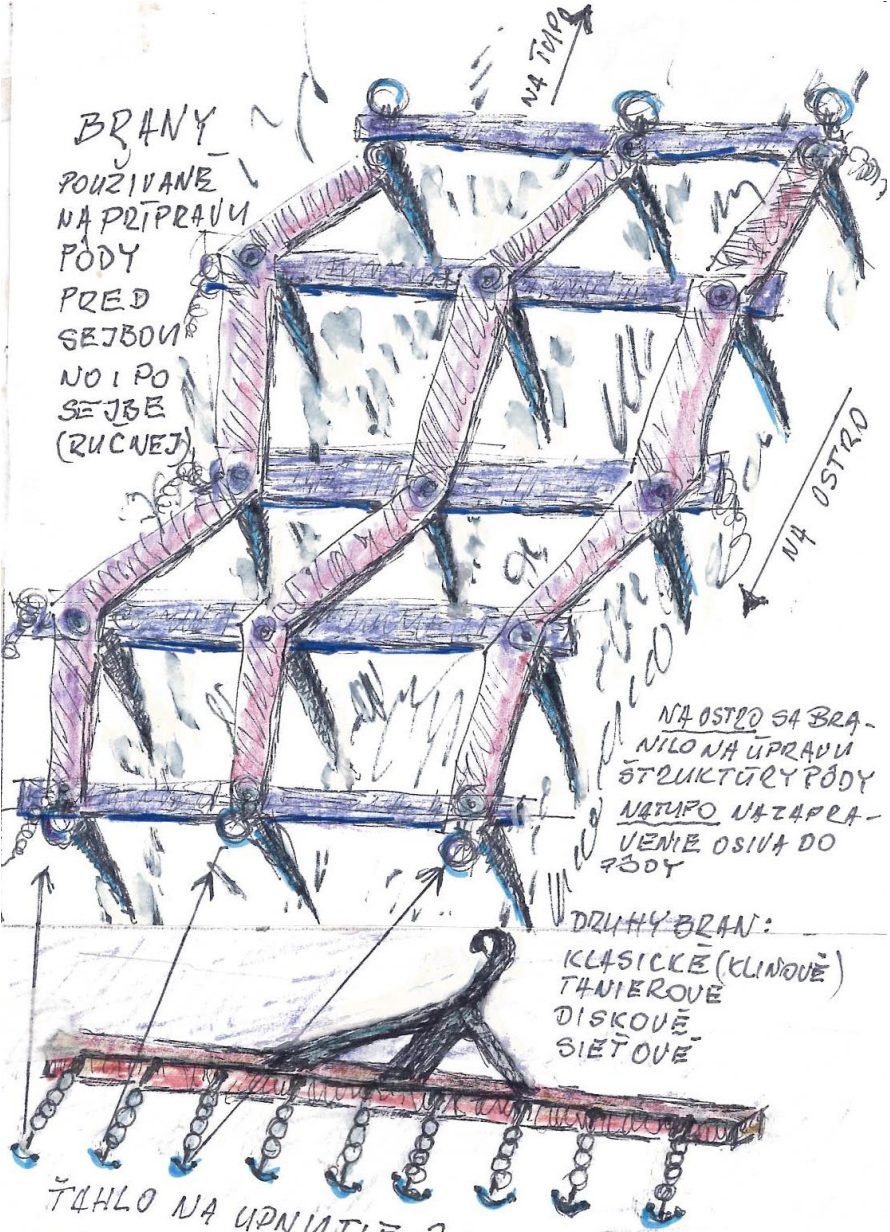 BRANY
POUŽIVANÉ
NA PRÍPRAVU
PÔDY
PRED
SEJBOU
NO I PO
SEJBE
(RUČNEJ)
NA TUPO
NA OSTRO
NA OSTRO SA BRA-
NILO NA ÚPRAVU
ŠTRUKTÚRY PÔDY
NATUPO NA ZAPRA-
VENIE OSIVA DO
PÔDY
DRUHY BRAN:
KLASICKÉ (KLINOVÉ)
TANIEROVÉ
DISKOVÉ
SIEŤOVÉ
ŤAHLO NA UPNUTIE